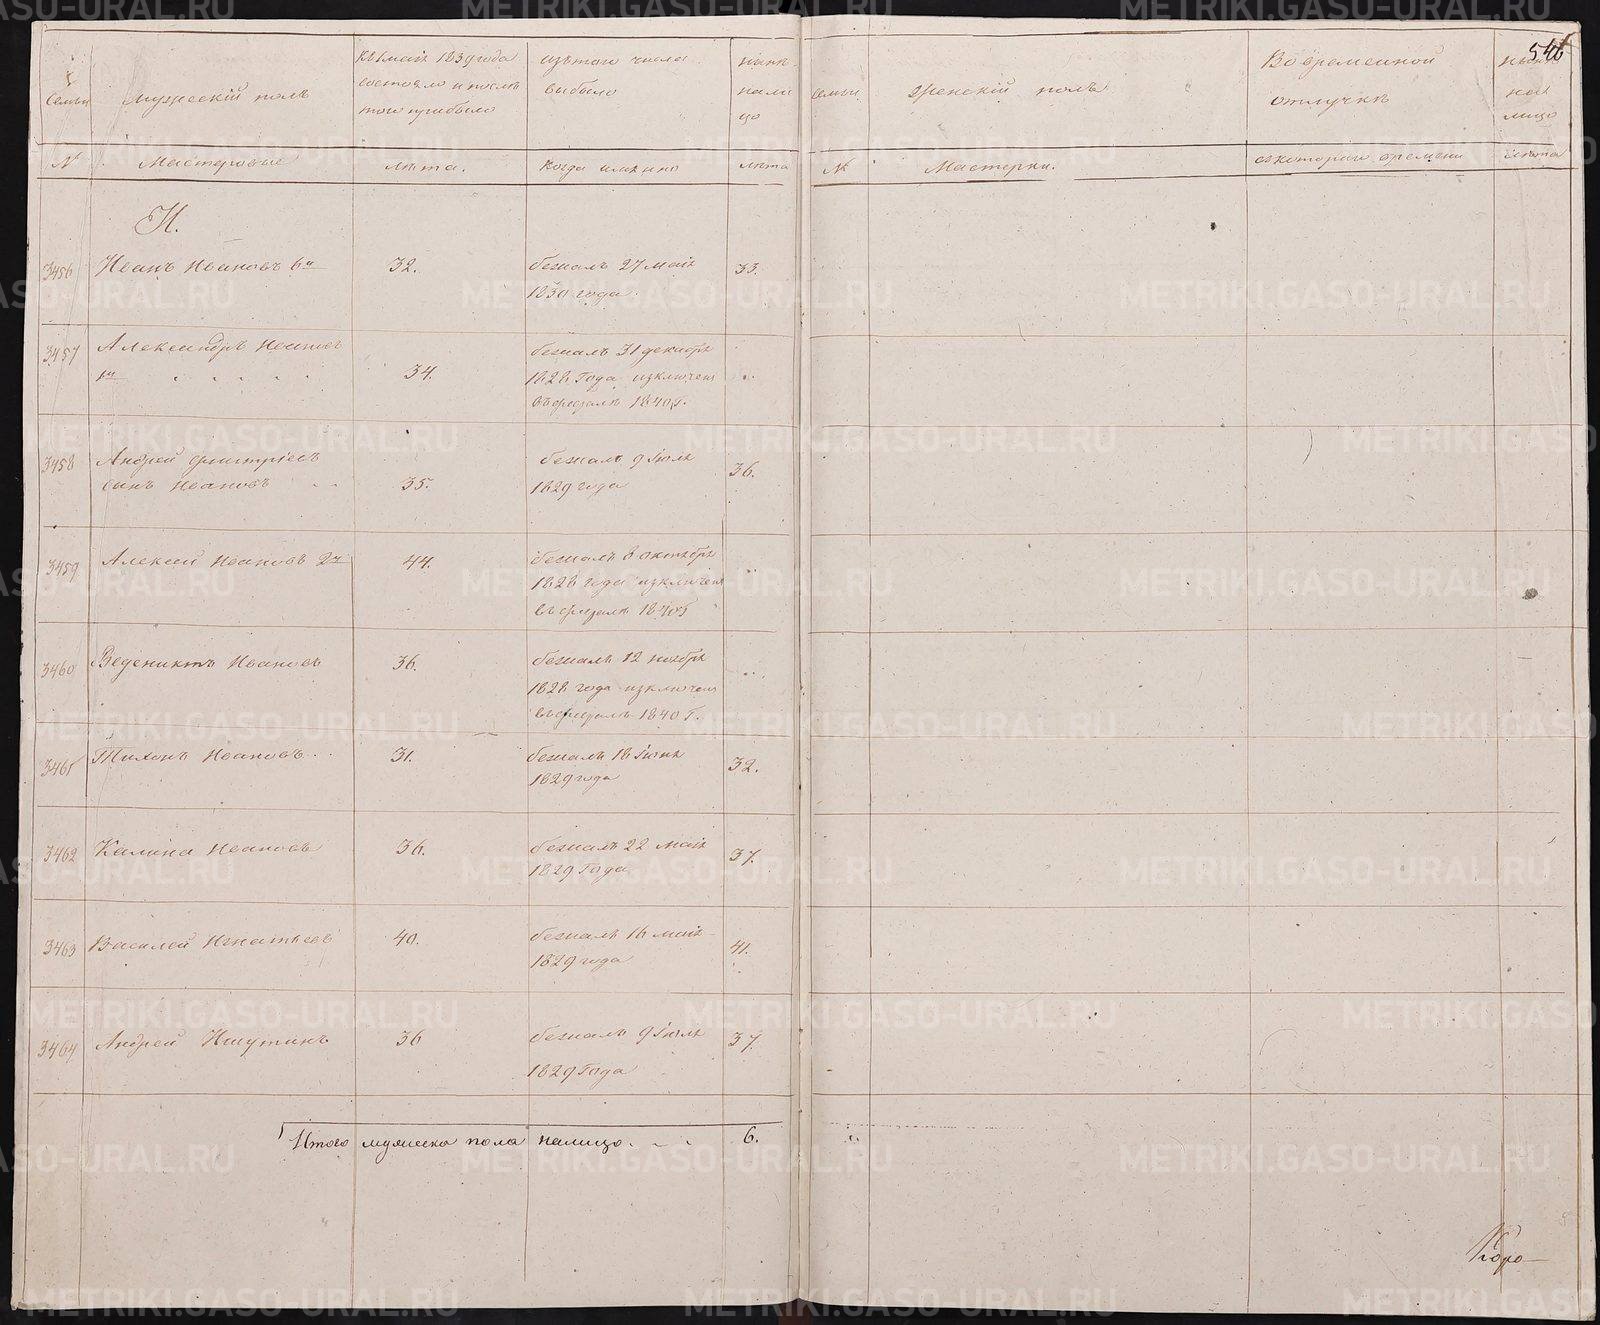 546
Семьи
мужескій полъ
Къ 1 маія 1839 года
состояло и послѣ
того прибыло
изъ того числа
выбыло
нынѣ
нали
цо
семьи
женскій полъ
Во временной
отлучкѣ
нынѣ
на
лицо
№
Мастеровые
лѣта.
Когда имянно
лѣта
№
Мастерки.
съ котораго времени
лѣта
И.
3456
Иванъ Ивановъ 6й
32.
бежалъ 27 маія
1830 года.
33.
3457
Александръ Ивановъ
1й
34.
бежалъ 31 декабря
1828 года изключенъ
въ февралѣ 1840 г.
3458
Андрей Дмитріевъ
сынъ Ивановъ
35.
бежалъ 9 Іюля
1829 года
36.
3459
Алексей Ивановъ 2й
44.
бежалъ 6 октября
1828 года изключенъ
въ февралѣ 1840 г
3460
Веденикть Ивановъ
36.
бежалъ 12 ноября
1828 года изключенъ
въ февралѣ 1840 г.
3461
Тихонъ Ивановъ.
31.
бежалъ 18 Іюня
1829 года
32.
3462
Калина Ивановъ
36.
бежалъ 22 маія
1829 года
37.
3463
Василей Игнатьевъ
40.
бежалъ 16 маія
1829 года
41.
3464
Андрей Ишутинъ
36
бежалъ 9 Іюля
1829 года
37.
Итого мужеска пола налицо.
6.
Коро-
METRIKI.GASO-URAL.RU